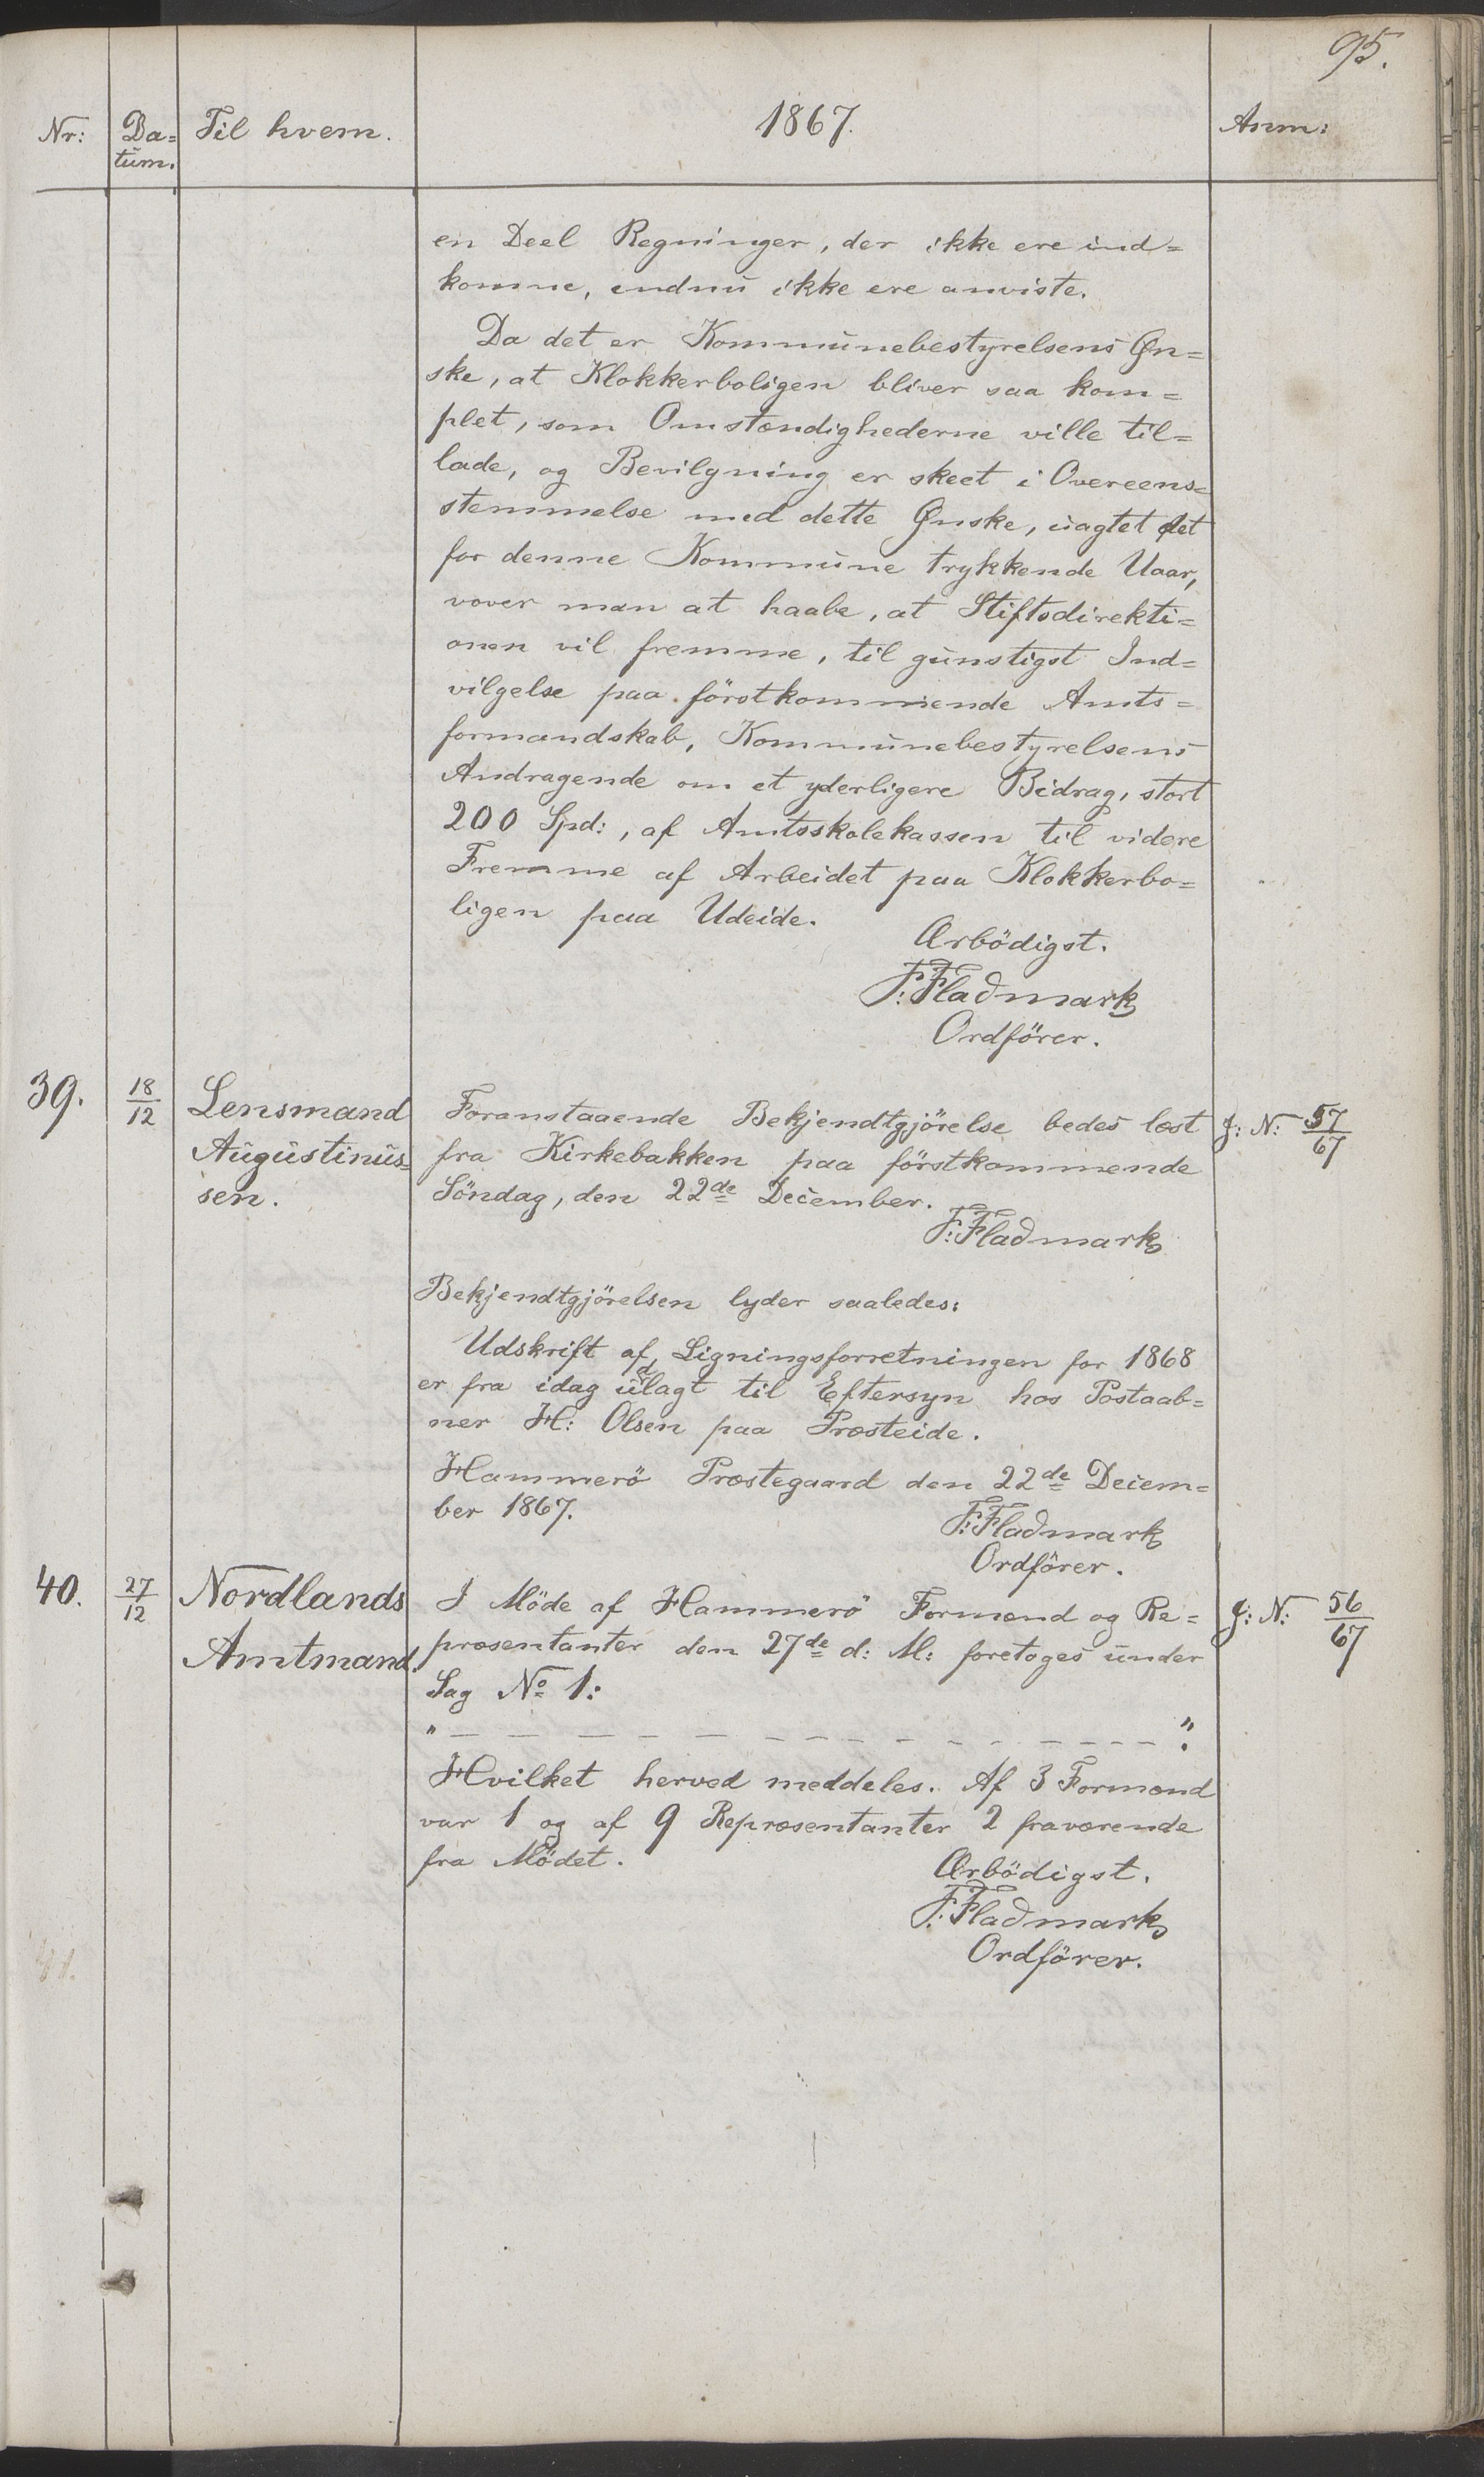 95.
Nr: Da= Til hvem. 1867. Anm:
tum.
en Deel Regninger, der ikke ere ind=
komne, endnu ikke ere anviste.
Da det er Kommunebestyrelsens Øn=
ske, at Klokkerboligen bliver saa kom=
plet, som Omstændighederne ville til=
lade, og Bevilgning er skeet i Overeens=
stemmelse med dette Ønske, uagtet det
for denne Kommune trykkende Uaar,
vover man at haabe, at Stiftsdirekti=
onen vil fremme, til gunstigst Ind=
vilgelse paa förstkommende Amts=
formandskab, Kommunebestyrelsens
Andragende om et yderligere Bidrag, stort
200 Spd:, af Amtsskolekassen til videre
Fremme af Arbeidet paa Klokkerbo=
ligen paa Udeide.
Ærbödigst.
F: Fladmark
Ordförer.
39. 18/12 Lensmand Foranstaaende Bekjendtgjörelse bedes læst J: N: 57/67
Augustinus= fra Kirkebakken paa förstkommende
sen. Söndag, den 22de December.
F: Fladmark
Bekjendtgjörelsen lyder saaledes:
Udskrift af Ligningsforretningen for 1868
er fra idag udlagt til Eftersyn hos Postaab=
ner H: Olsen paa Præsteide.
Hammerö Præstegaard den 22de Decem=
ber 1867.
F: Fladmark
Ordförer.
40. 27/12 Nordlands I Möde af Hammerö Formænd og Re= J: N: 56/67
Amtmand. præsentanter den 27de d: M: foretoges under
Sag No 1:
" — — — — — — — — — — — — — — ".
Hvilket herved meddeles. Af 3 Formænd
var 1 og af 9 Repræsentanter 2 fraværende
fra Mödet.
Ærbödigst.
F: Fladmark
Ordförer.
41.